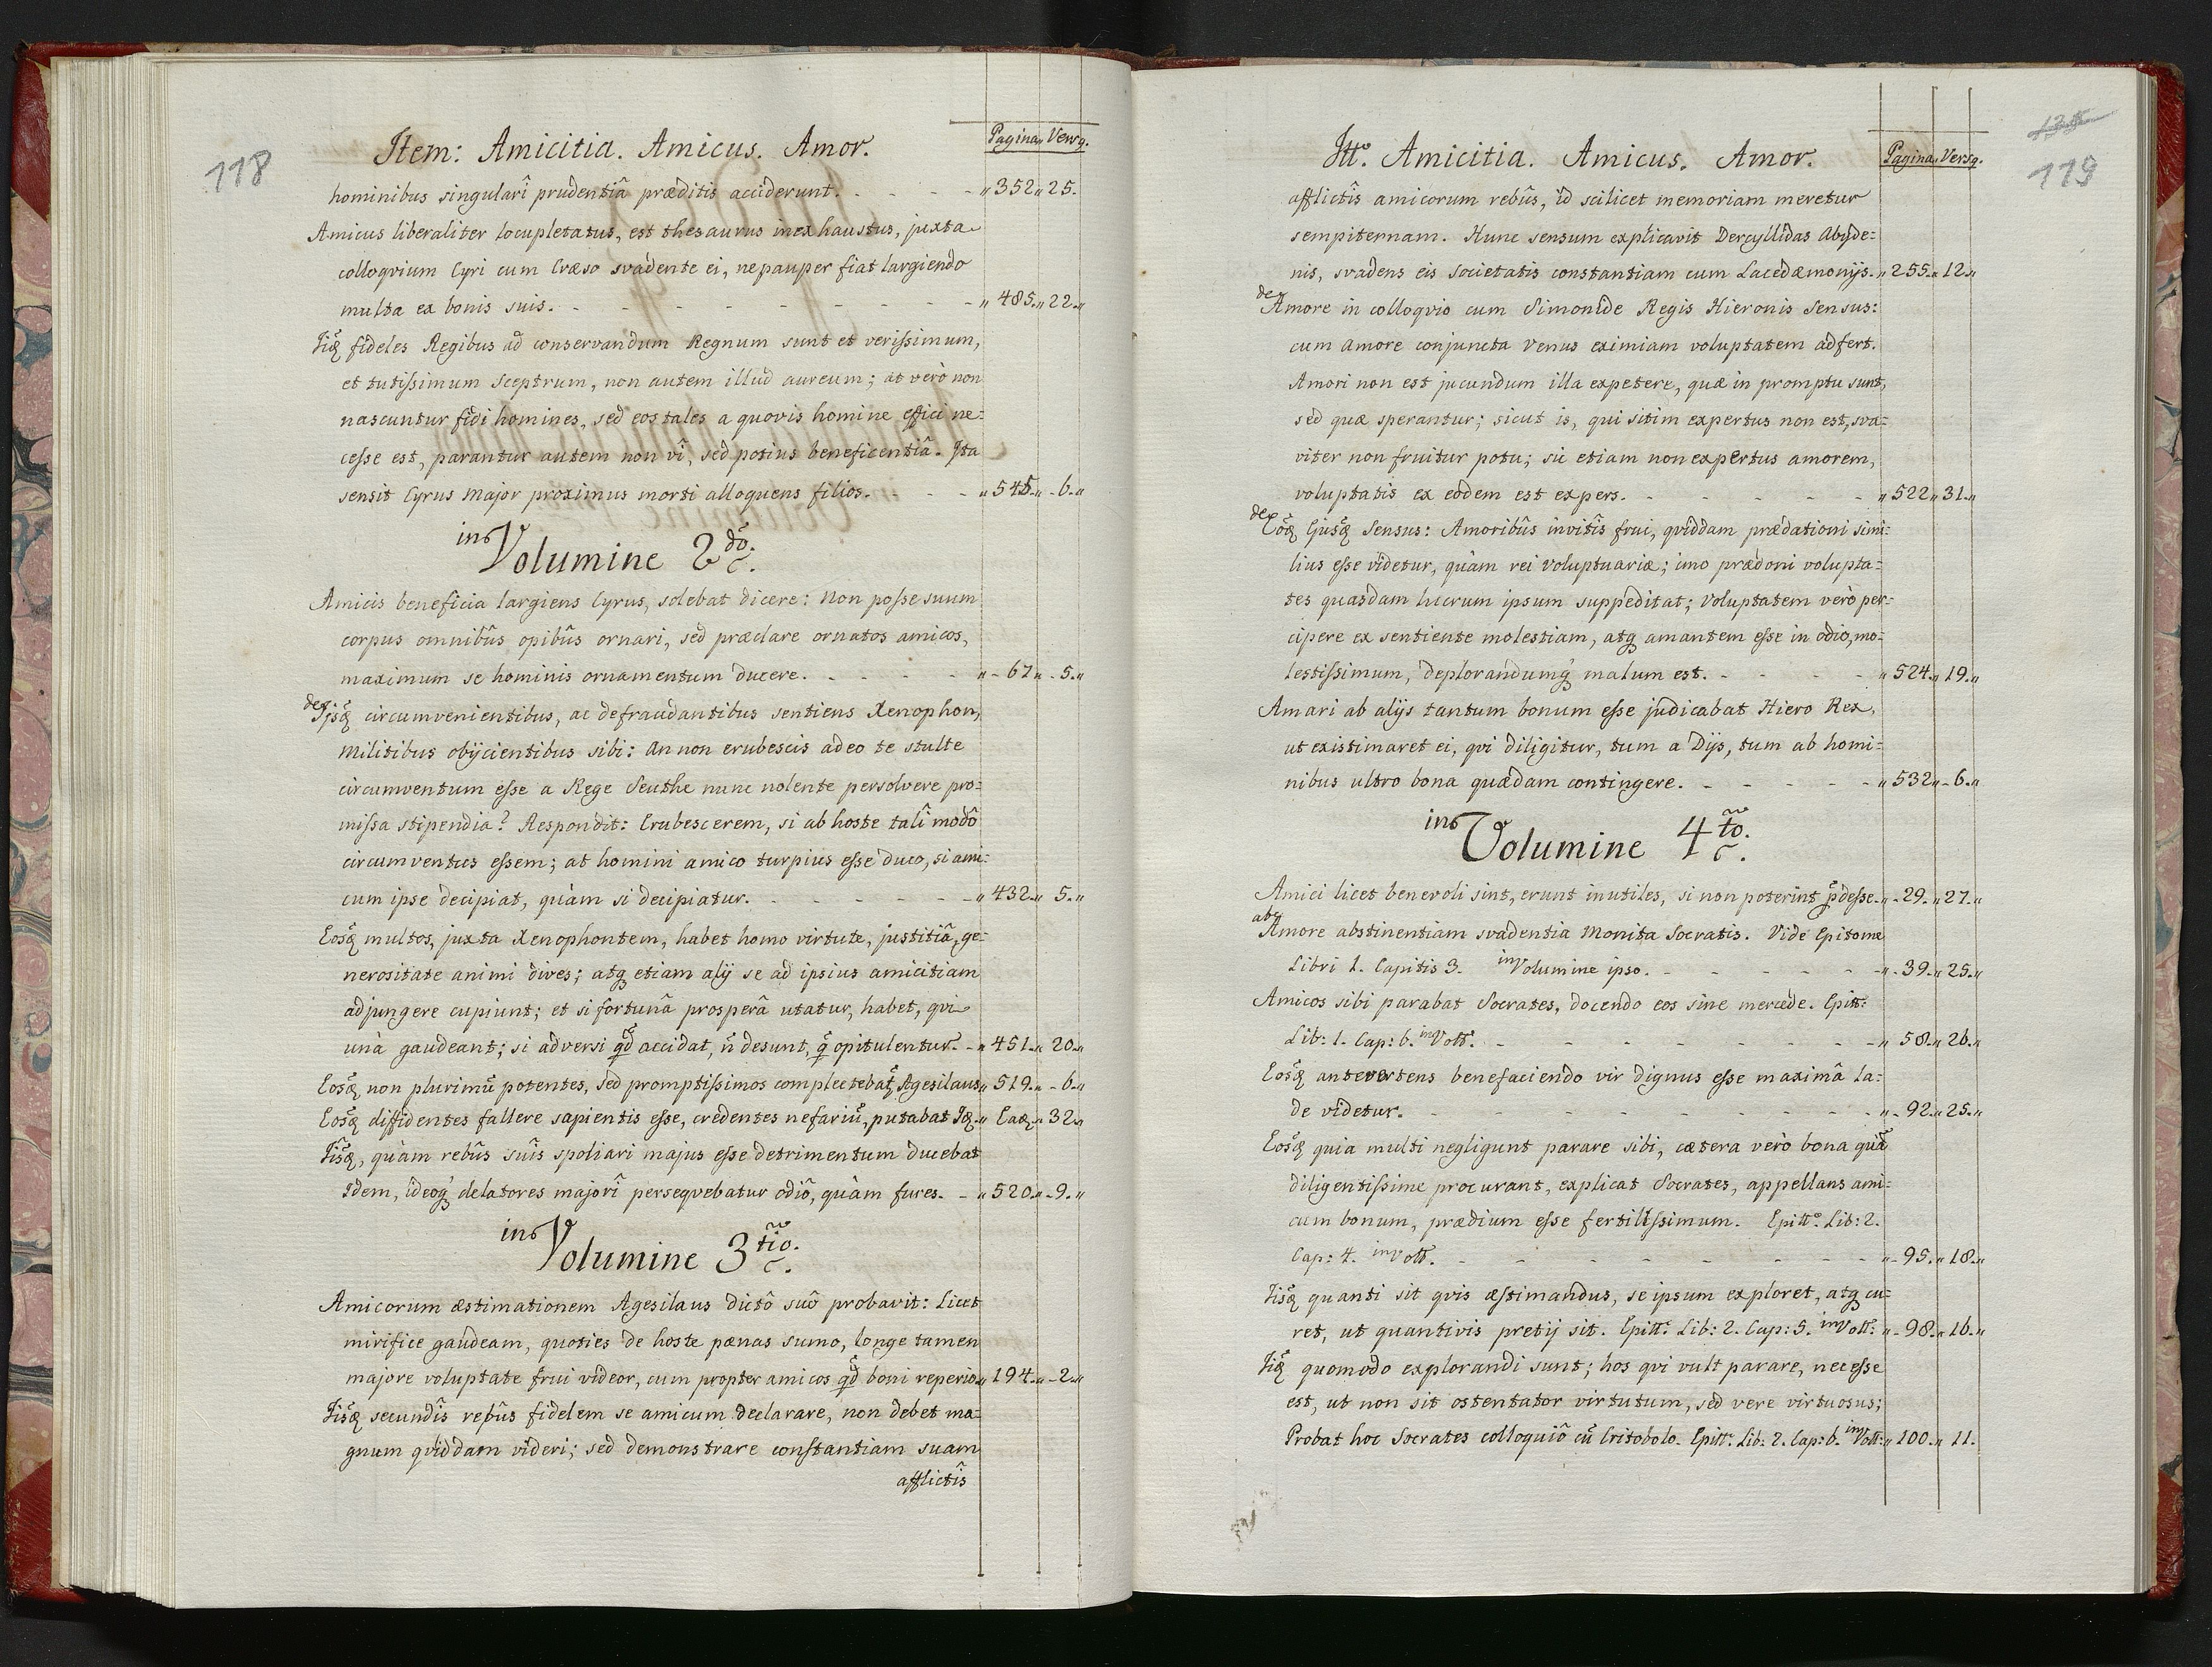 118
Item: Amicitia. Amicus. Amor.
Pagina„ Versq.
hominibus singularî prudentiâ præditis acciderunt. - - - „352„25.
Amicus liberaliter locupletatus, est thesaurus inexhaustus, juxta
colloqvium Cyri cum Cræso svadente ei, ne pauper fiat largiendo
multa ex bonis suis. - - - - - - „485.„22.„
fideles Regibus ad conservandum Regnum sunt et verissimum,
et tutissimum sceptrum, non autem illud aureum; at verò non
nascuntur fidi homines, sed eos tales a quovis homine effici ne=
cesse est, parantur autem non vî, sed potius beneficentiâ. Ita
sensit Cyrus Major proximus morti alloquens filios. - - - „545.„-6.„
in Volumine 2do.
Amicis beneficia largiens Cyrus, solebat dicere: Non posse suum
corpus omnibûs opibûs ornari, sed præclare ornatos amicos,
maximum se hominis ornamentum ducere. - - - - „-67„-5.„
de Ijsq circumvenientibus, ac defraudantibus sentiens Xenophon,
Militibus obijcientibus sibi: an non erubescis adeo te stulte
circumventum esse a Rege Seuthe nunc nolente persolvere pro=
missa stipendia? Respondit: Erubescerem, si ab hoste talî modô
circumventus essem; at homini amico turpius esse duco, si ami=
cum ipse decipiat, quàm si decipiatur. - - - - „432.„5.„
Eosq multos, juxta Xenophontem, habet homo virtute, justitiâ, ge=
nerositate animi dives; atq etiam alij se ad ipsius amicitiam
adjungere cupiunt; et si fortunâ prosperâ utatur, habet, qvi
unà gaudeant; si adversi qd accidat, ñ desunt, q opitulentur. - „451.„20.„
Eosq non plurimũ potentes, sed promptissimos complectebat Agesilaus„519.„-6.„
Eosq diffidentes fallere sapientis esse, credentes nefariũ, putabat Iq.„Eaq.„32„
Iisq, quàm rebûs suîs spoliari majus esse detrimentum ducebat
Idem, ideoq delatores majorî perseqvebatur odiô, quàm fures. - „520.„-9.„
in Volumine 3tio.
Amicorum æstimationem Agesilaus dictô suô probavit: Licet
mirifice gaudeam, quoties de hoste pænas sumo, longe tamen
majore voluptate frui videor, cum propter amicos qd boni reperio.„194.„-2.„
Iisq secundîs rebûs fidelem se amicum declarare, non debet ma=
gnum qviddam videri; sed demonstrare constantiam suam
afflictîs
119
Itt. Amicitia. Amicus. Amor.
Pagina„Versq.
afflictîs amicorum rebûs, id scilicet memoriam meretur
sempiternam. Hunc sensum explicavit Dercyllidas Abyde=
nis, svadens eis societatis constantiam cum Lacedæmonijs.„255.„12.„
de Amore in colloqvio cum Simonide Regis Hieronis Sensus:
cum amore conjuncta Venus eximiam voluptatem adfert.
Amori non est jucundum illa expetere, quæ in promptu sunt,
sed quæ sperantur; sicut is, qui sitim expertus non est, sva=
viter non fruitur potu; sic etiam non expertus amorem,
voluptatis ex eodem est expers. - - - - - „522„31.„
de Eôq Ejusq Sensus: Amoribûs invitîs frui, qviddam prædationi simi=
lius esse videtur, quàm rei voluptuariæ; imo prædoni volupta=
tes quasdam lucrum ipsum suppeditat; Voluptatem verò per=
cipere ex sentiente molestiam, atq amantem esse in odio, mo=
lestissimum, deplorandumq malum est. - - - - „524.„19.„
Amari ab alijs tantum bonum esse judicabat Hiero Rex,
ut existimaret ei, qvi diligitur, tum a Dijs, tum ab homi=
nibus ultro bona quædam contingere. - - - - „532„-6.„
in Volumine 4to.
Amici licet benevoli sint, erunt inutiles, si non poterint pdesse.„-29.„27.„
ab Amore abstinentiam svadentia Monita Socratis. Vide Epitome
Libri 1. Capitis 3. in Volumine ipso. - - - - „-39.„25.„
Amicos sibi parabat Socrates, docendo eos sine mercede. Epitt:
Lib: 1. Cap: 6. in Voll. - - - - - „58.„26.„
Eosq antevertens benefaciendo vir dignus esse maximâ la=
de videtur. - - - - - - „-92.„25.„
Eosq quia multi negligunt parare sibi, cætera verò bona quã
diligentissime procurant, explicat Socrates, appellans ami=
cum bonum, prædium esse fertilissimum. Epitt. Lib: 2.
Cap: 4. in Voll. - - - - - - „-95.„18.„
Iisq quanti sit qvis æstimandus, se ipsum exploret, atq cu=
ret, ut quantivis pretij sit. Epitt. Lib: 2. Cap: 5. in Voll: „-98.„16.„
quomodo explorandi sunt; hos qvi vult parare, necesse
est, ut non sit ostentator virtutum, sed vere virtuosus;
Probat hoc Socrates colloquiô cũ Critobolo. Epitt. Lib: 2. Cap: 6. in Voll:„100.„11.